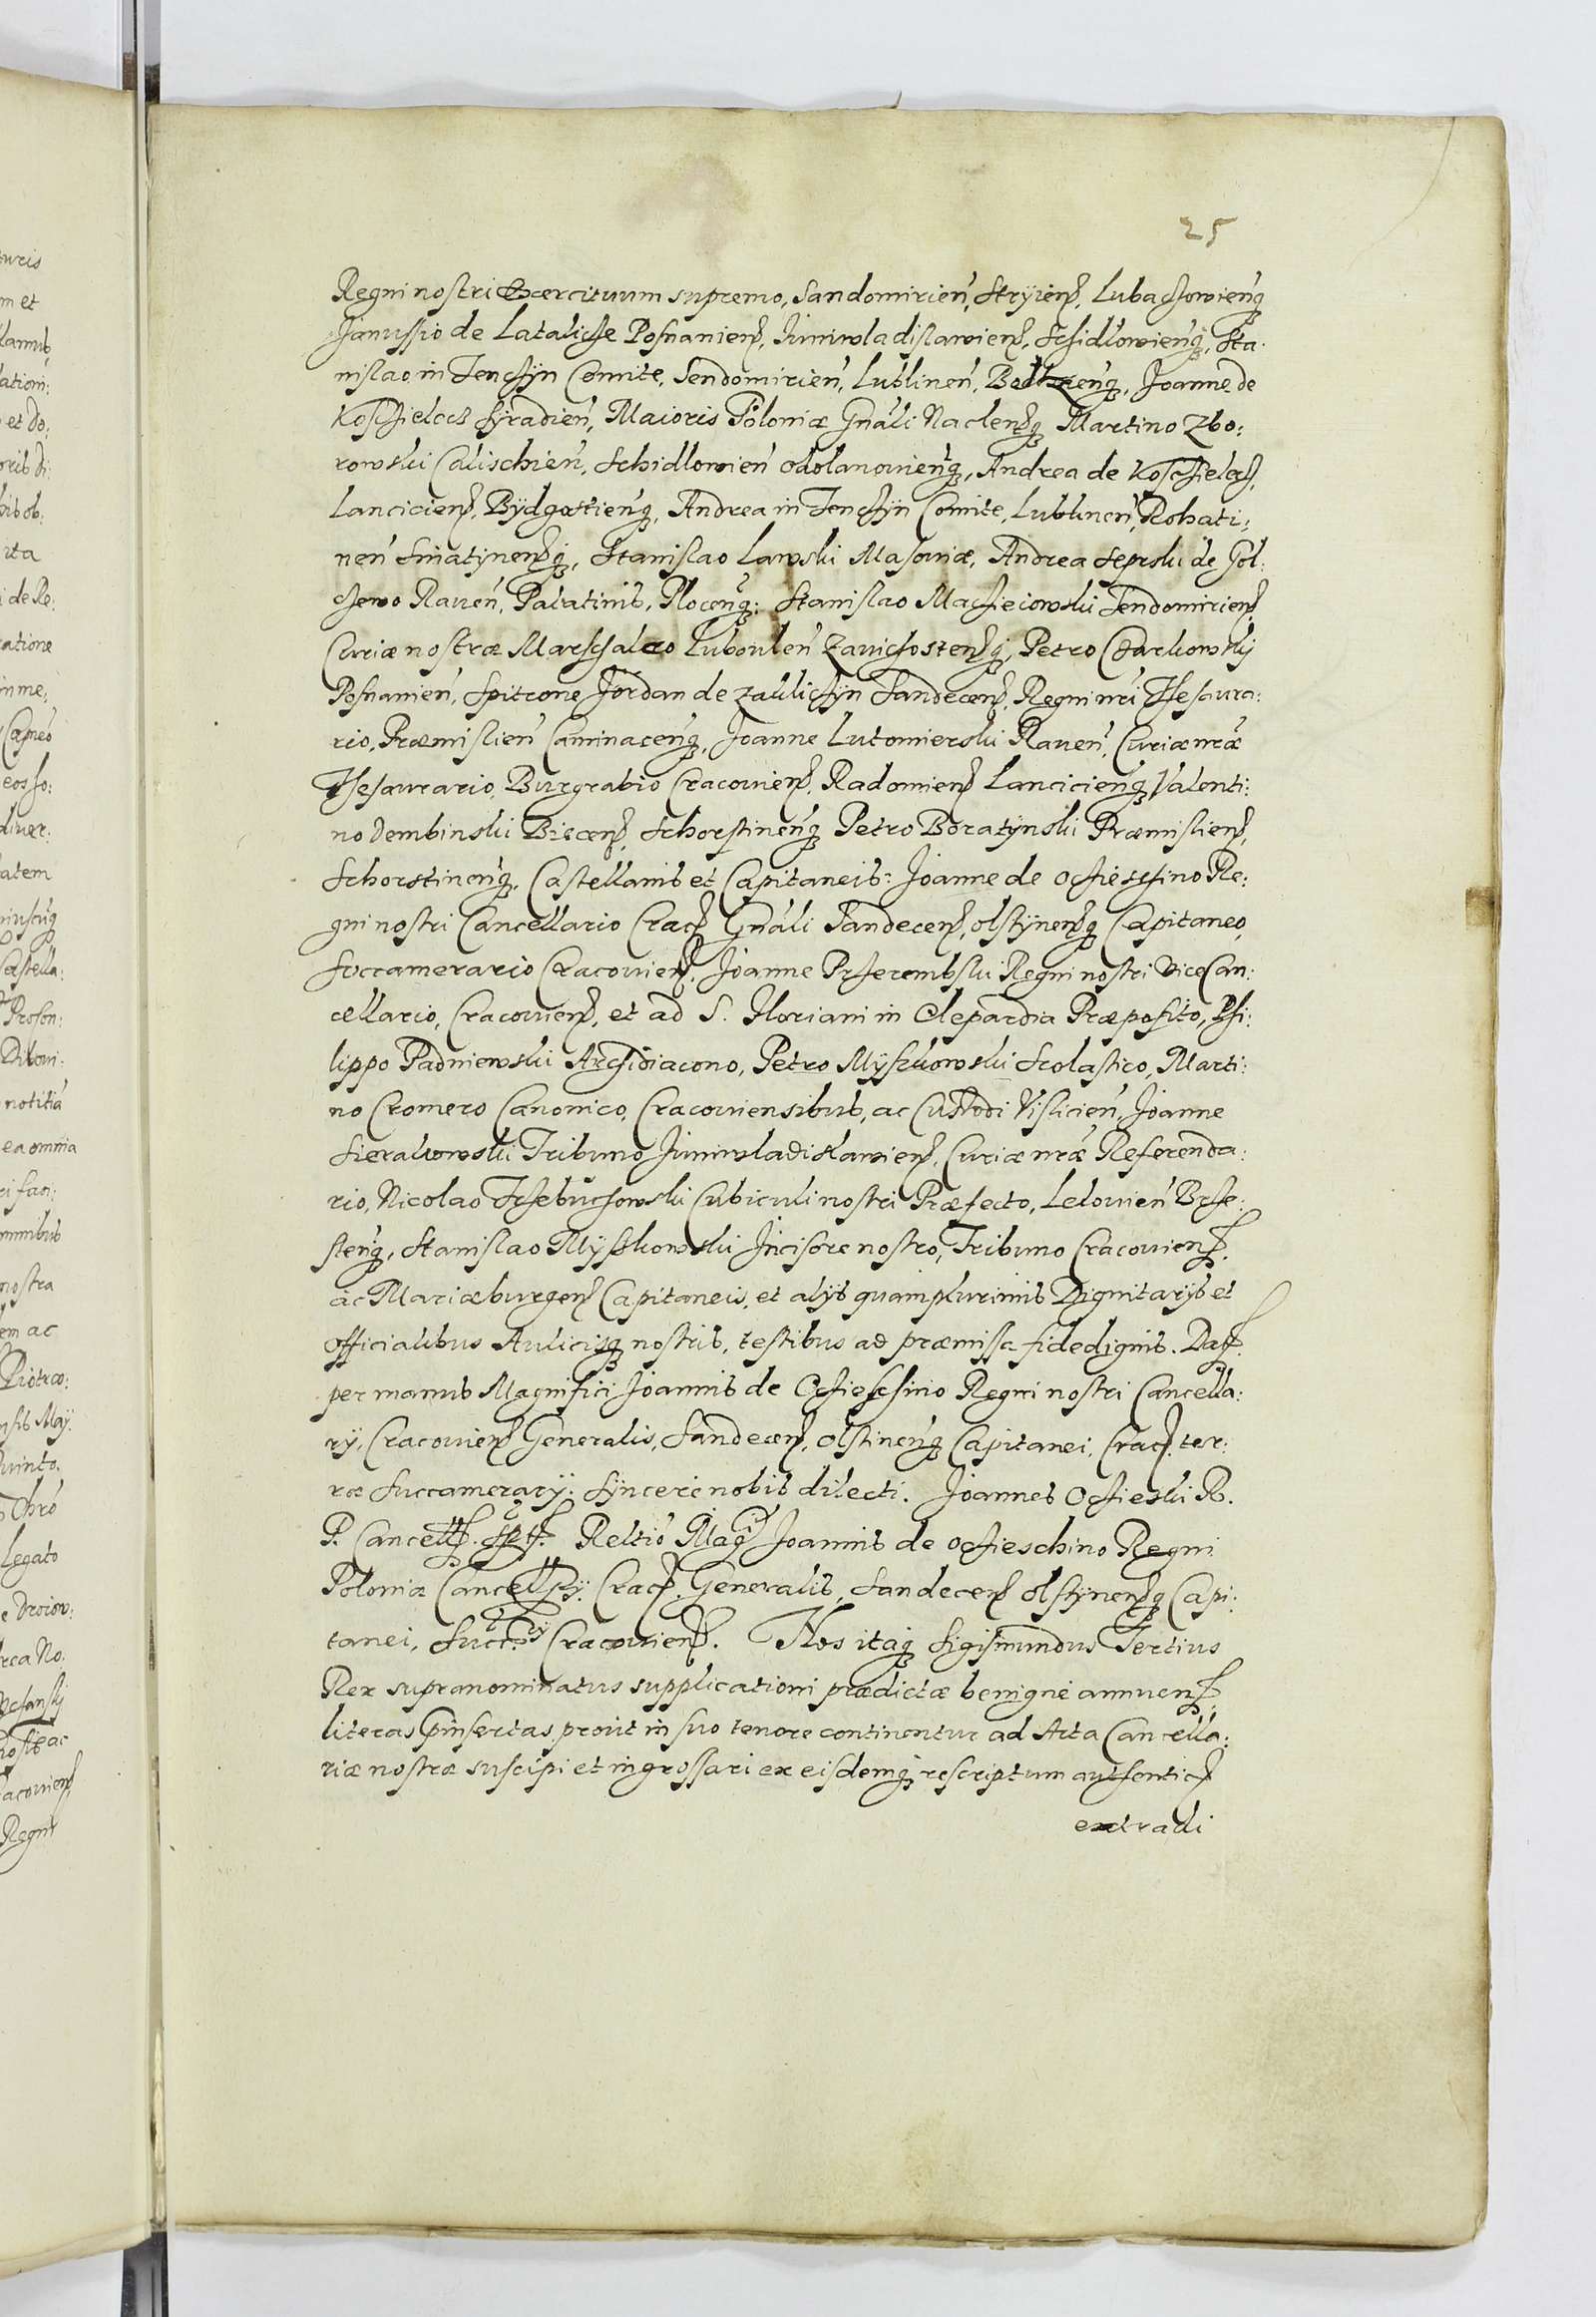 25
Regni nostri Exercituum supremo, Sandomirien̄, Stryien̄, Lubaczowienq̄
Janussio de Latalicze Posnanien̄, Juniwladislawien̄, Schidlowienq̄, Sta-
nislao in Tenczyn Comite, Sendomirien̄, Lublinen̄, Belzenq̄, Joanne de
Kosczielecz Syradien̄, Maioris Poloniæ Gnāli Naclenq̄ Martino Zbo:
rowski Calischien̄, Schidlowien̄ Odolanowienq̄, Andrea de Kosczielecz,
Lancicien̄, Bydgostienq̄, Andrea in Tenczyn Comite, Lublinen̄, Rohati:
nen̄ Sniatynenq̄, Stanislao Lawski Masoviæ, Andrea Sepski de Gol:
czewo Raven̄, Palatinis, Plocenq̄: Stanislao Maczieiowski Sendomirien̄
Curiæ nostræ Marschalco Lubovlen̄ Zavichostenq̄, Petro Czarkowskij
Posnanien̄, Spitcone Jordan de Zaklicżyn Sandecen̄, Regni nr̄i Thesaura:
rio, Præmislien̄ Caminacenq̄, Joanne Lutomierski Raven̄, Curiæ nr̄æ
Thesaurario, Burgrabio Cracovien̄, Radomien̄ Lancicienq̄ Valenti:
no Dembinski Biecen̄, Schorstinenq̄ Petro Boratynski Præmislien̄,
Schorstinenq̄, Castellanis et Capitaneis: Joanne de Oczieschino Re:
gni nostri Cancellario Crac̄ Gnāli Sandecen̄, Olstynenq̄ Capitaneo,
Succamerario Cracovien̄, Joanne Przerembski Regni nostri ViceCan:
cellario, Cracovien̄, et ad S. Floriani in Clepardia Præposito, Phi:
lippo Padniewski Archidiacono, Petro Myszkowski Scolastico, Marti:
no Cromero Canonico, Cracoviensibus, ac Custodi Vislicien̄, Joanne
Sierakowski Tribuno Juniwladislavien̄, Curiæ nr̄æ Referenda:
rio, Nicolao Trzebuchowski Cubiculi nostri Præfecto, Lelovien̄ Brze:
stenq̄, Stanislao Myszkowski Incisore nostro, Tribuno Cracovien̄
ac Mariæburgen̄ Capitaneis, et alijs quamplurimis Dignitarijs et
Officialibus Aulicisq̄ nostris, testibus ad præmissa fidedignis. Dat̄.
per manus Magnifici Joannis de Oczieschino Regni nostri Cancella:
rij, Cracovien̄ Generalis, Sandecen̄, Olstinenq̄ Capitanei, Crac̄ ter:
ræ Succamerarij: Syncere nobis dilecti. Joannes Oczieski R.
P. Cancell̄. sp̄t̄. Reltio Maḡci Joannis de Oczieschino Regni
Poloniæ Cancell̄rij. Crac̄. Generalis, Sandecen̄ Olstynenq̄ Capi:
tanei, Succ̄rij Cracovien̄. Nos itaq̄ Sigismundus Tertius
Rex supranominatus supplicationi prædictæ benigne annuen̄
literas p̄insertas, prout in suo tenore continentur ad Acta Cancella:
riæ nostræ suscipi et ingrossari ex eisdemq̄ rescriptum authentic̄
extradi